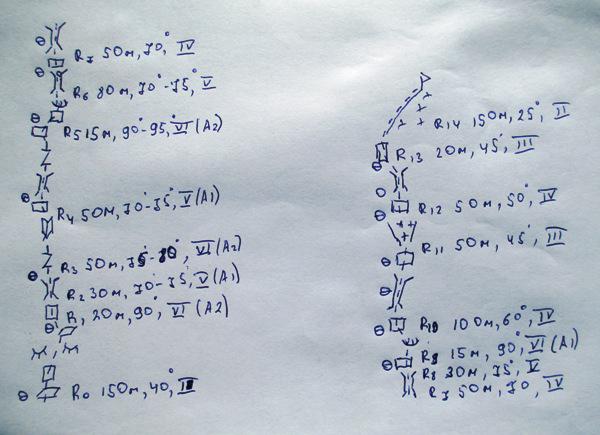 R7 50м, 70°, IV
R6 80м, 70°-75°, V
R5 15м, 90°-95°, VI (A2)
R4 50м, 70°-75°, V (A1)
R3 50м, 75°-80°, VI (A2)
R2 30м, 70°-75°, V (A1)
R1 20м, 90°, VI (A2)
R0 150м, 40°,
R14 150м, 25°, II
R13 20м, 45°, III
R12 50м, 50°, IV
R11 50м, 45°, III
R10 100м, 60°, IV
R9 15м, 90°, VI (A1)
R8 30м, 75°, V
R7 50м, 70, IV